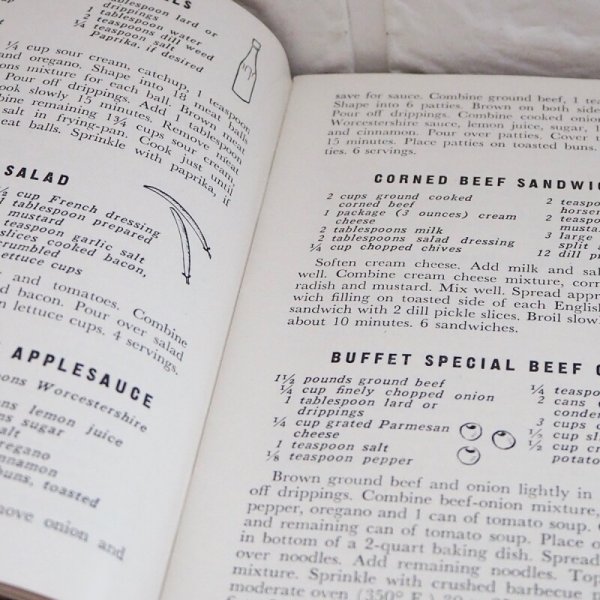 LLS
1 tablespoon lard or
drippings
1 tablespoon water
2 teaspoons dill weed
¼ teaspoon salt
Paprika, if desired
¼ cup sour cream, catchup, 1 teaspoon
and oregano. Shape into 18 meat
mixture for each ball. Brown
Pour off drippings. Add 1 tablespoon
cook slowly 15 minutes. Remove meat
remaining 1¾ cups sour cream,
salt in frying-pan. Cook just until
meat balls. Sprinkle with paprika, if
SALAD
½ cup French dressing
1 tablespoon prepared
mustard
teaspoon garlic salt
slices cooked bacon,
crumbled
Lettuce cups
and tomatoes. Combine
and bacon. Pour over salad
on lettuce cups. 4 servings.
APPLESAUCE
Worcestershire
lemon juice
sugar
salt
oregano
cinnamon
buns, toasted
onion and
save for sauce. Combine ground beef, 1
Shape into 6 patties. Brown on both
Pour off drippings. Combine cooked
Worcestershire sauce, lemon juice, sugar,
and cinnamon. Pour over patties. Cover
15 minutes. Place patties on toasted buns.
ties. 6 servings.
CORNED BEEF
2 cups ground cooked
corned beef
1 package (3 ounces) cream
cheese
2 tablespoons milk
2 tablespoons salad dressing
¼ cup chopped chives
2
2
mustard
3 large
split
12 dill
Soften cream cheese. Add milk and
well. Combine cream cheese mixture,
radish and mustard. Mix well. Spread
wich filling on toasted side of each English
sandwich with 2 dill pickle slices. Broil
about 10 minutes. 6 sandwiches.
BUFFET SPECIAL BEEF
1½ pounds ground beef
¼ cup finely chopped onion
1 tablespoon lard or
drippings
¼ cup grated Parmesan
cheese
1 teaspoon salt
⅛ teaspoon pepper
¼
2 cans
3 cups
½ cup
½ cup
Brown ground beef and onion lightly in
off drippings. Combine beef-onion mixture,
pepper, oregano and 1 can of tomato soup.
and remaining can of tomato soup. Place
in bottom of a 2-quart baking dish. Spread
over noodles. Add remaining noodles. Top
mixture. Sprinkle with crushed barbecue
moderate oven (350° F.)